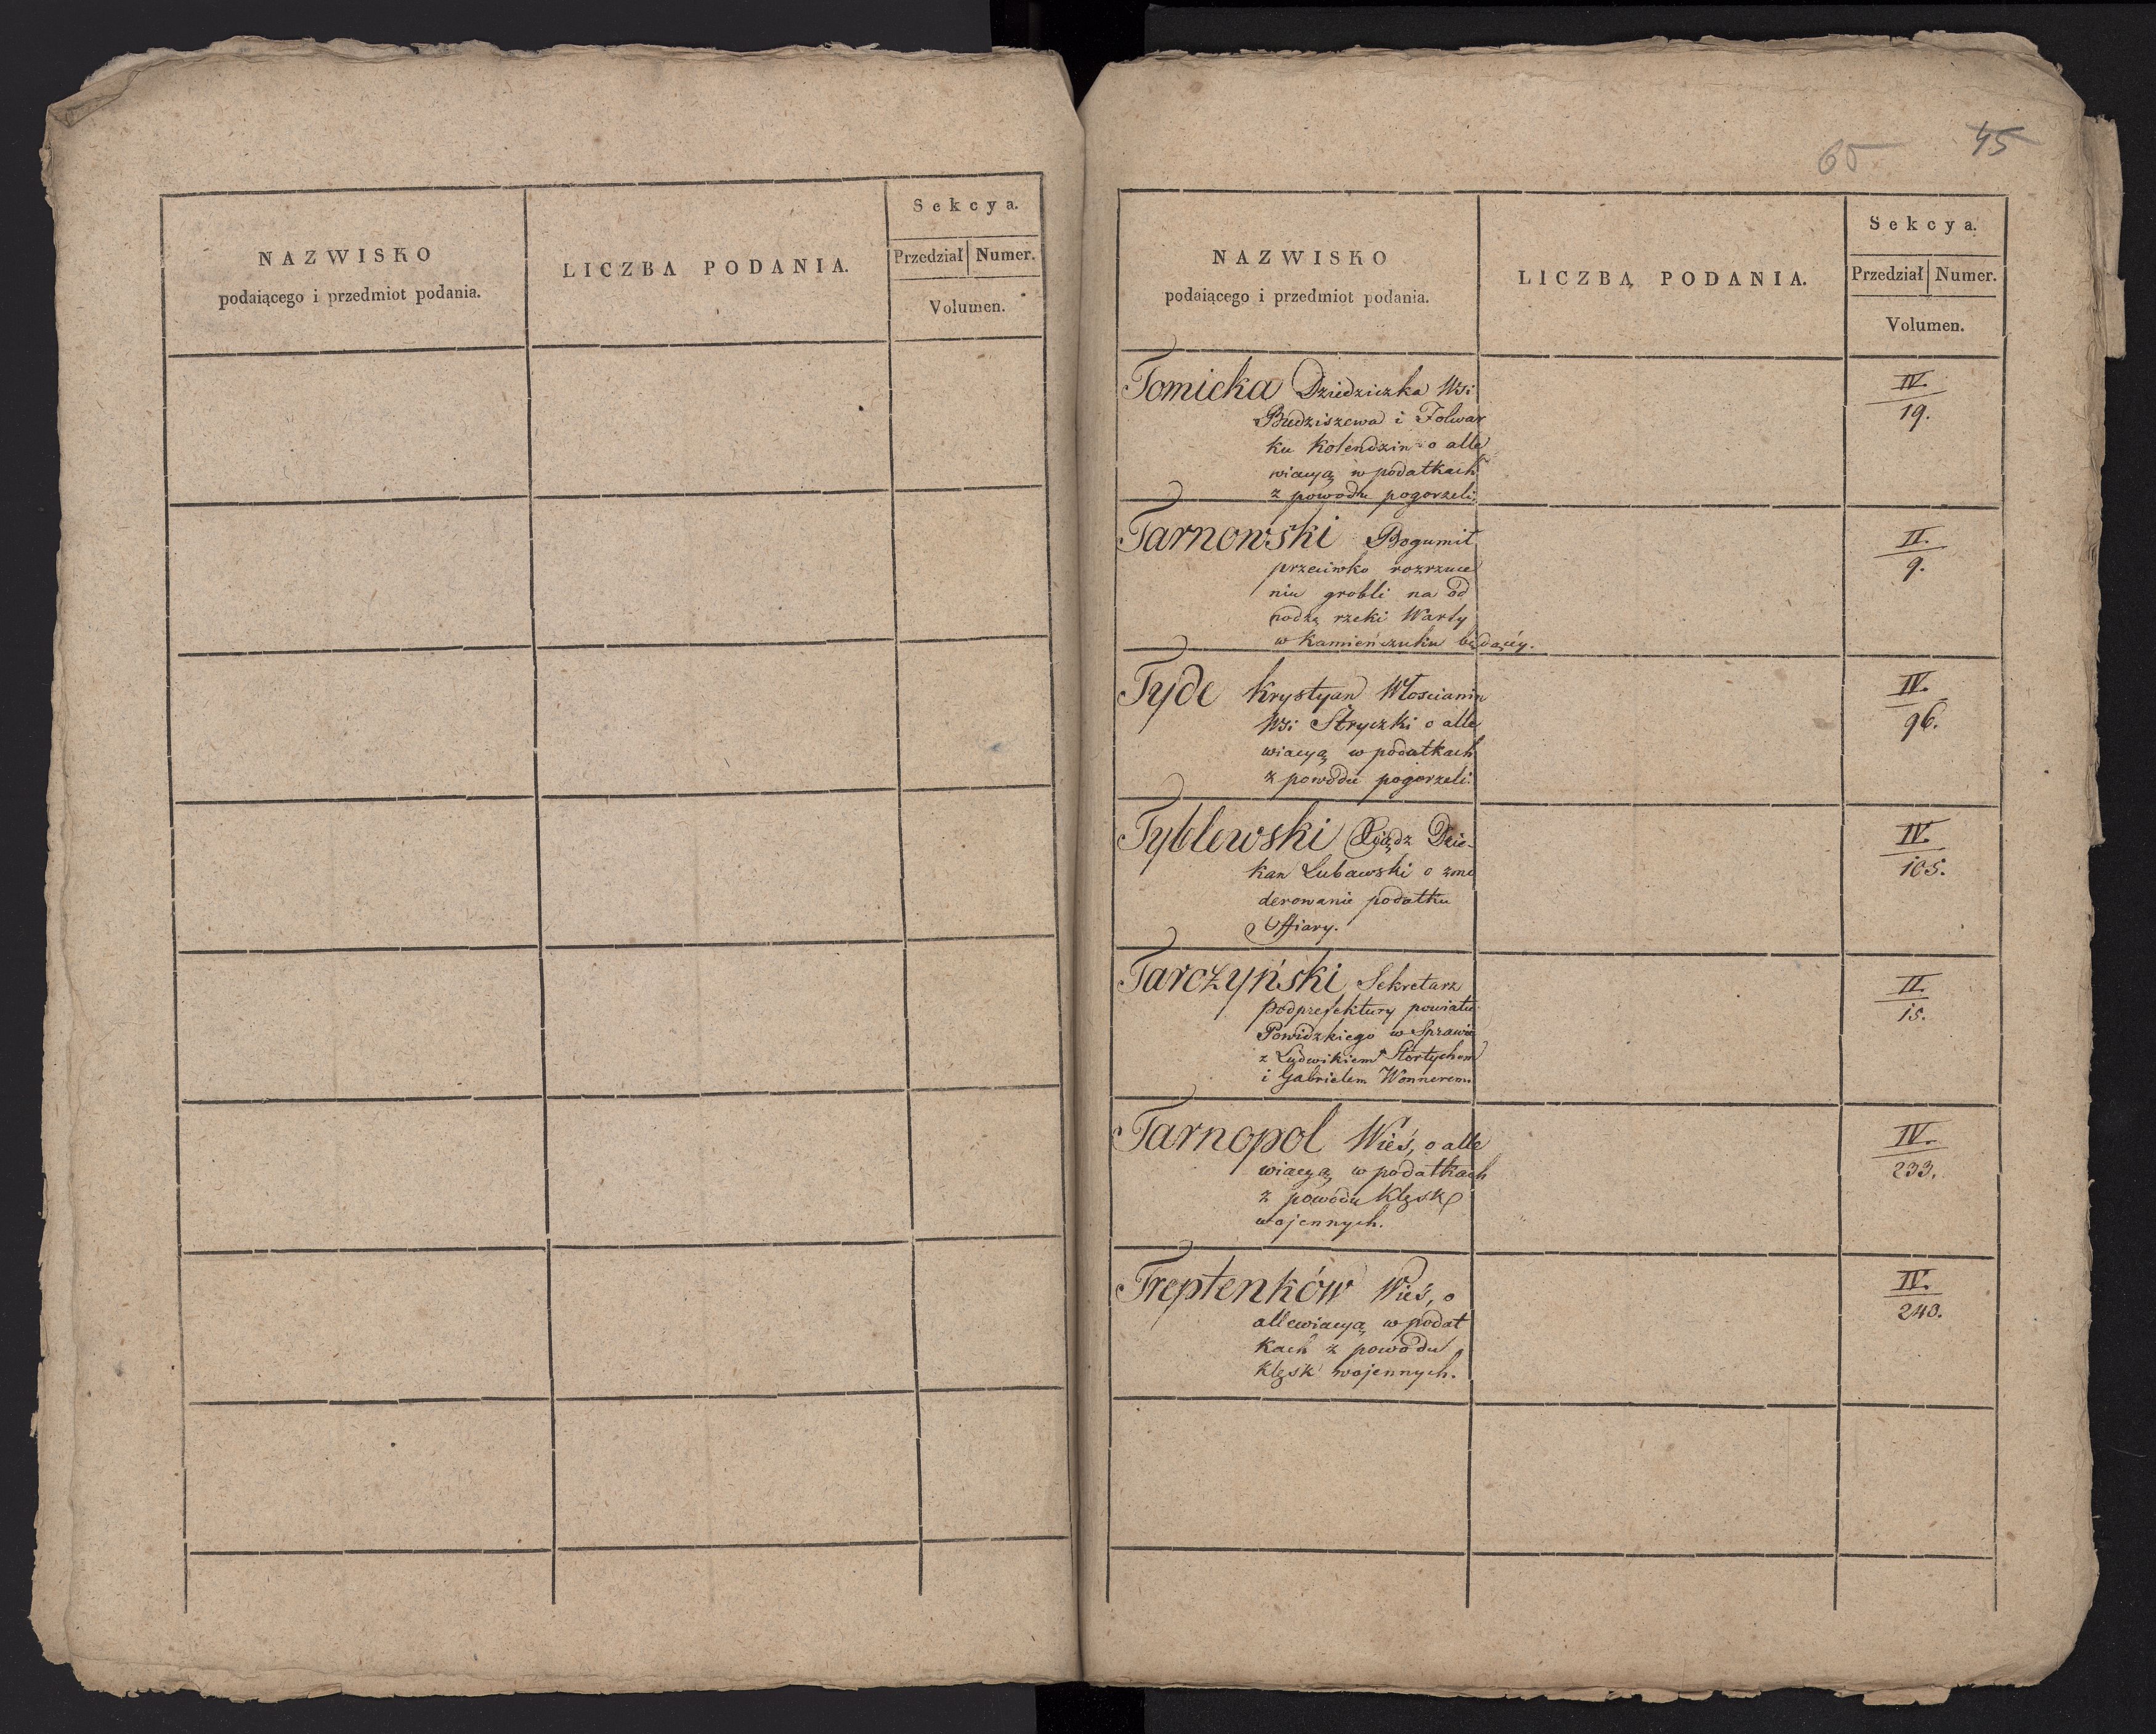 NAZWISKO
podaiącego i przedmiot podania.
LICZBA PODANIA.
Sekcya.
Przedział Numer.
Volumen.
65 45
NAZWISKO
podaiącego i przedmiot podania.
LICZBA PODANIA.
Sekcya.
Przedział Numer.
Volumen.
Tomicka Dziedziczka Wsi
Budziszewa i Folwar
ku Kolendzin o alle
wiacyą w podatkach
z powodu pogorzeli.
IV.
19.
Tarnowski Bogumił
przeciwko rozrzuce
niu grobli na od
nodzę rzeki Warty
w Kamieńczuku będącéy.
II.
9.
Tyde Krystyan Włoscianin
Wsi Stryczki o alle
wiacyą w podatkach
z powodu pogorzeli.
IV.
96.
Tyblewski Xiądz Dzie-
kan Lubawski o
derowanie podatku
Offiary.
IV.
105.
Tarczyński Sekretarz
podprefektury powiatu
Powidzkiego w Sprawie
z Ludwikiem
i Gabrielem Wonnerem
II.
15.
Tarnopol Wieś, o alle
wiacyą w podatkach
z powodu klęsk
wojennych.
IV.
233.
Treptenków Wieś, o
allewiacyą w podat
kach z powodu
klęsk wojennych.
IV.
240.